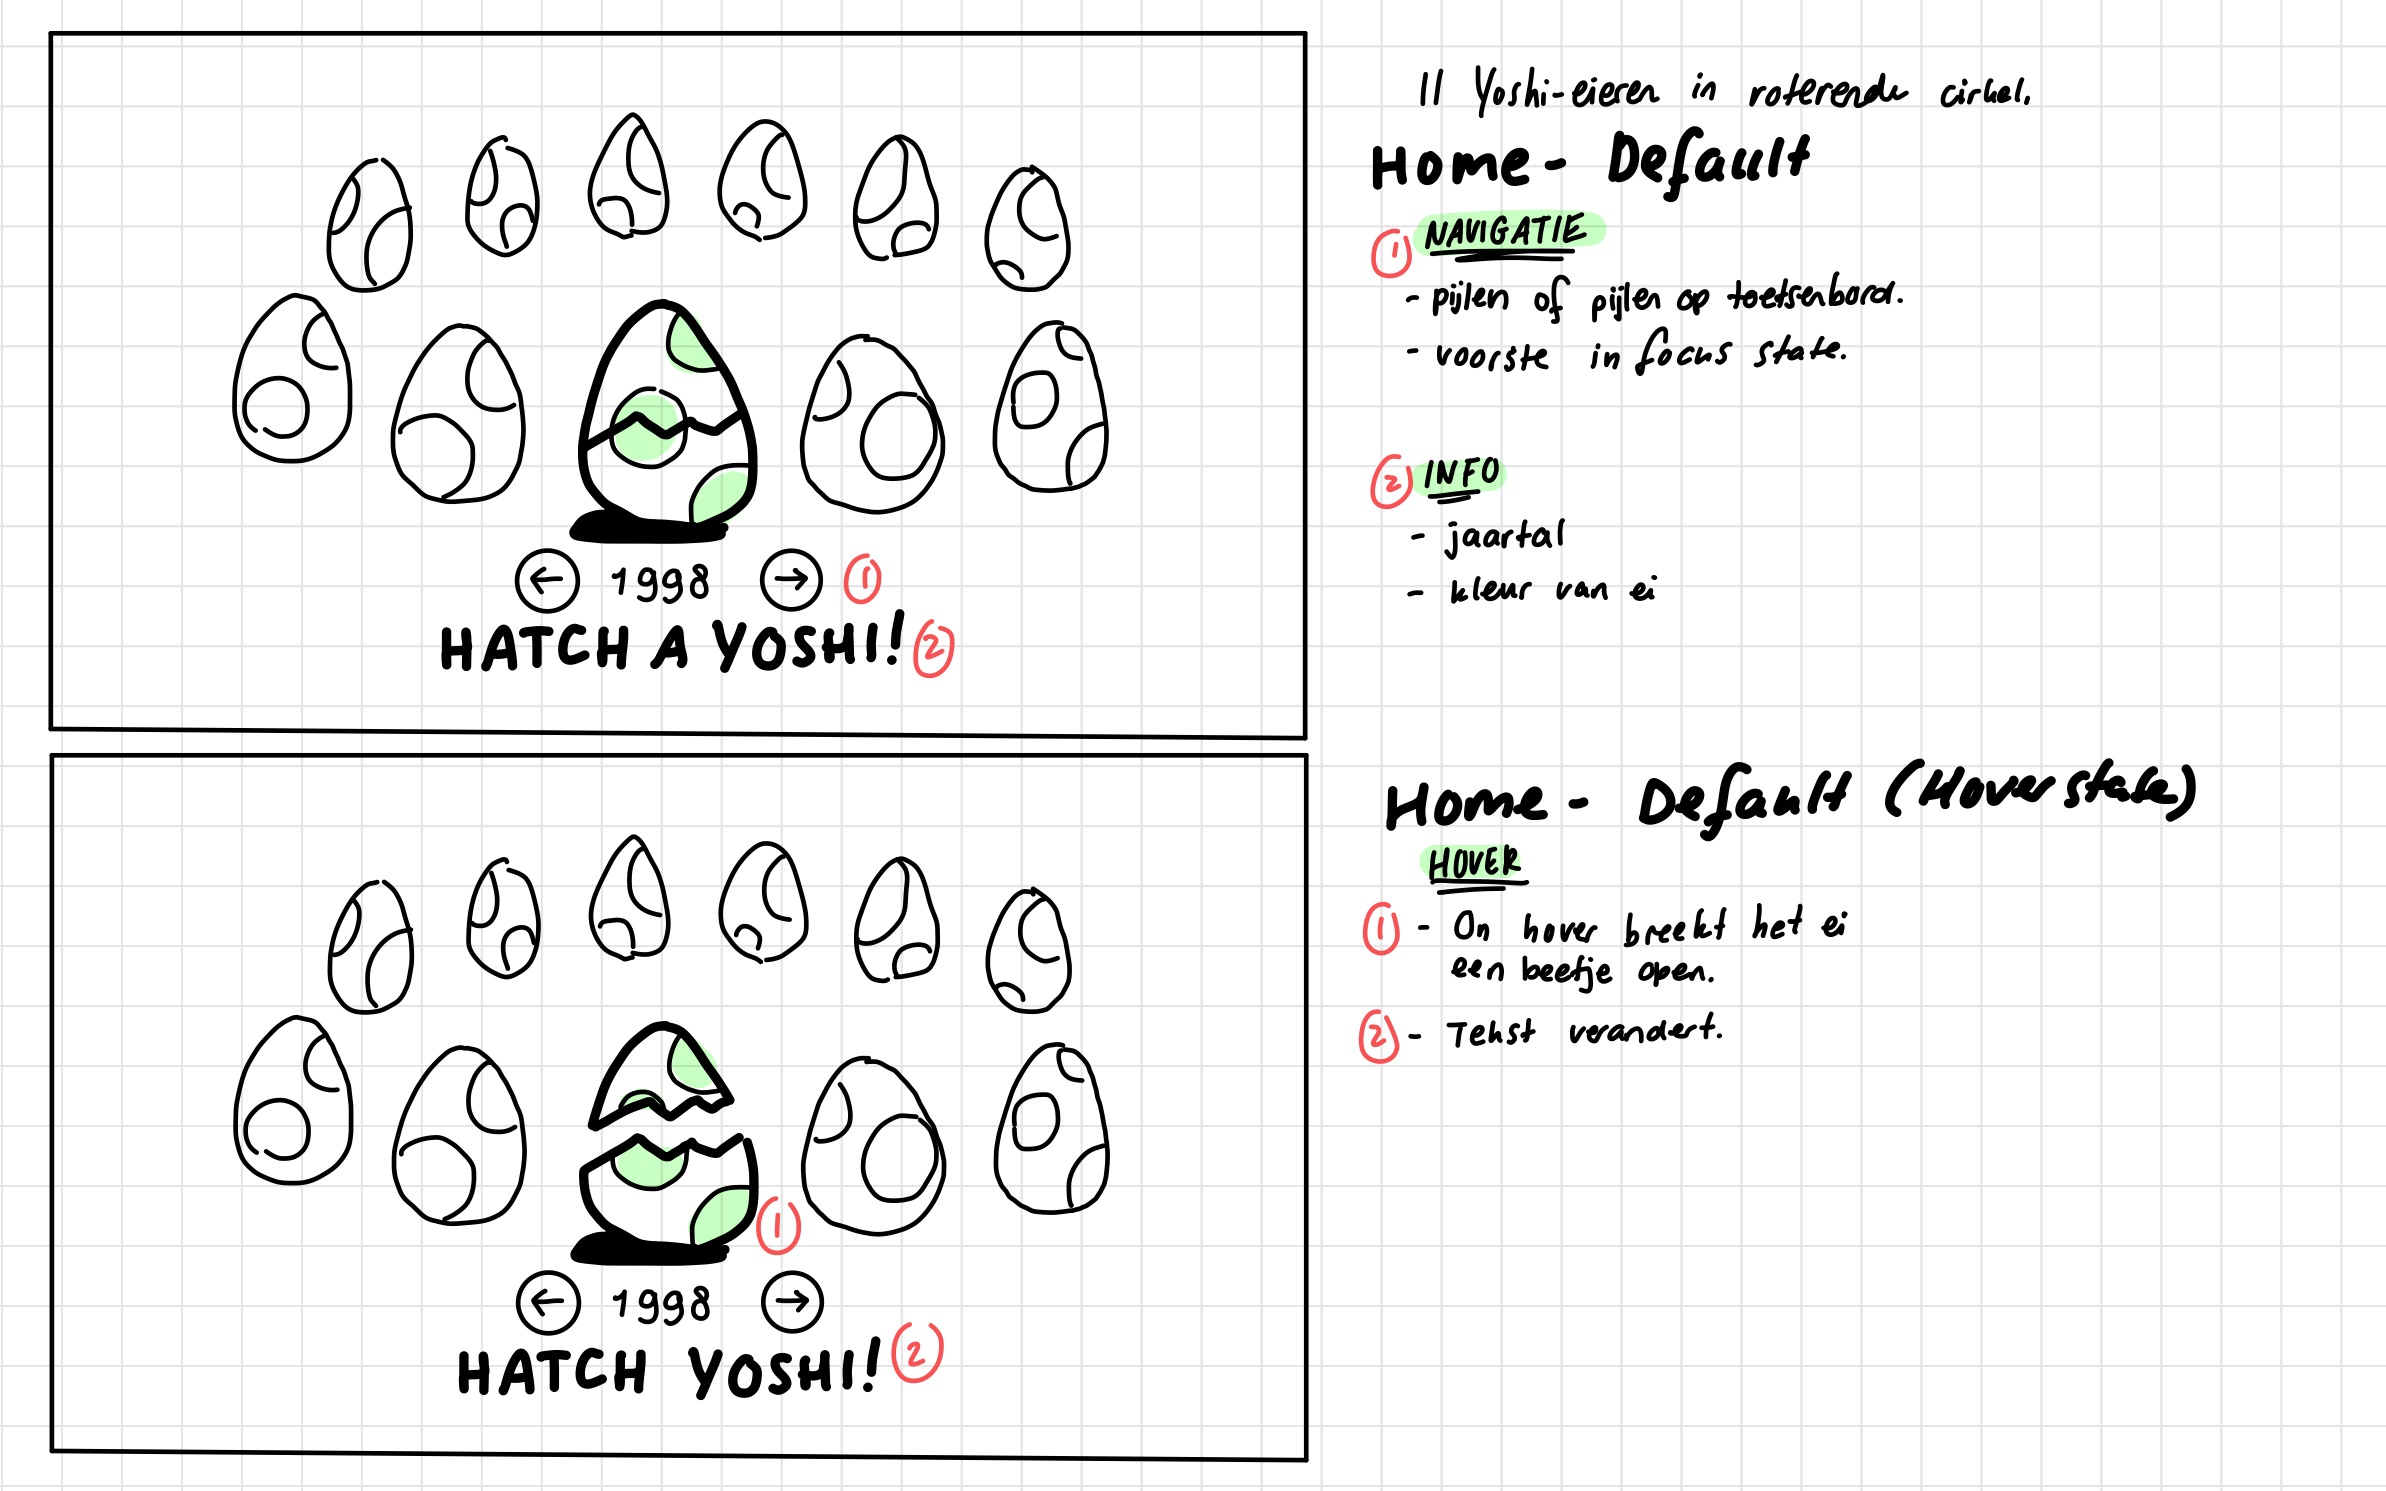 1998
1
HATCH A YOSHI!
2
11 Yoshi-eieren in roterende cirkel.
Home - Default
1 NAVIGATIE
- pijlen of pijlen op toetsenbord.
- voorste in focus state.
2 INFO
- jaartal
- kleur van ei
1
1998
HATCH YOSHI!
2
Home - Default (Hover state)
HOVER
1 - On hover breekt het ei
een beetje open.
2 - Tekst verandert.